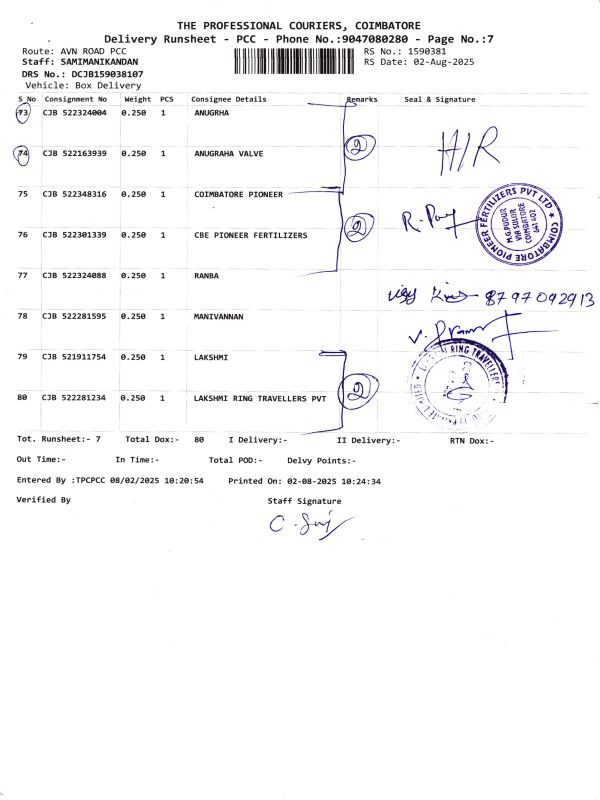 THE PROFESSIONAL COURIERS, COIMBATORE
Delivery Runsheet - PCC - Phone No.:9047080280 - Page No.:7
Route: AVN ROAD PCC RS No.: 1590381
Staff: SAMIMANIKANDAN RS Date: 02-Aug-2025
DRS No.: DCJB159038107
Vehicle: Box Delivery
S No Consignment No Weight PCS Consignee Details Remarks Seal & Signature
73 CJB 522324004 0.250 1 ANUGRHA
74 CJB 522163939 0.250 1 ANUGRAHA VALVE 2 H/R
75 CJB 522348316 0.250 1 COIMBATORE PIONEER
76 CJB 522301339 0.250 1 CBE PIONEER FERTILIZERS 2
COIMBATORE PIONEER FERTILIZERS PVT LTD
M.G.PUDUR
VIA SULUR
COIMBATORE
641 402
77 CJB 522324088 0.250 1 RANBA 8797092913
78 CJB 522281595 0.250 1 MANIVANNAN
79 CJB 521911754 0.250 1 LAKSHMI
RING TRAVELLERS
80 CJB 522281234 0.250 1 LAKSHMI RING TRAVELLERS PVT 2
Tot. Runsheet:- 7 Total Dox:- 80 I Delivery:- II Delivery:- RTN Dox:-
Out Time:- In Time:- Total POD:- Delvy Points:-
Entered By :TPCPCC 08/02/2025 10:20:54 Printed On: 02-08-2025 10:24:34
Verified By Staff Signature